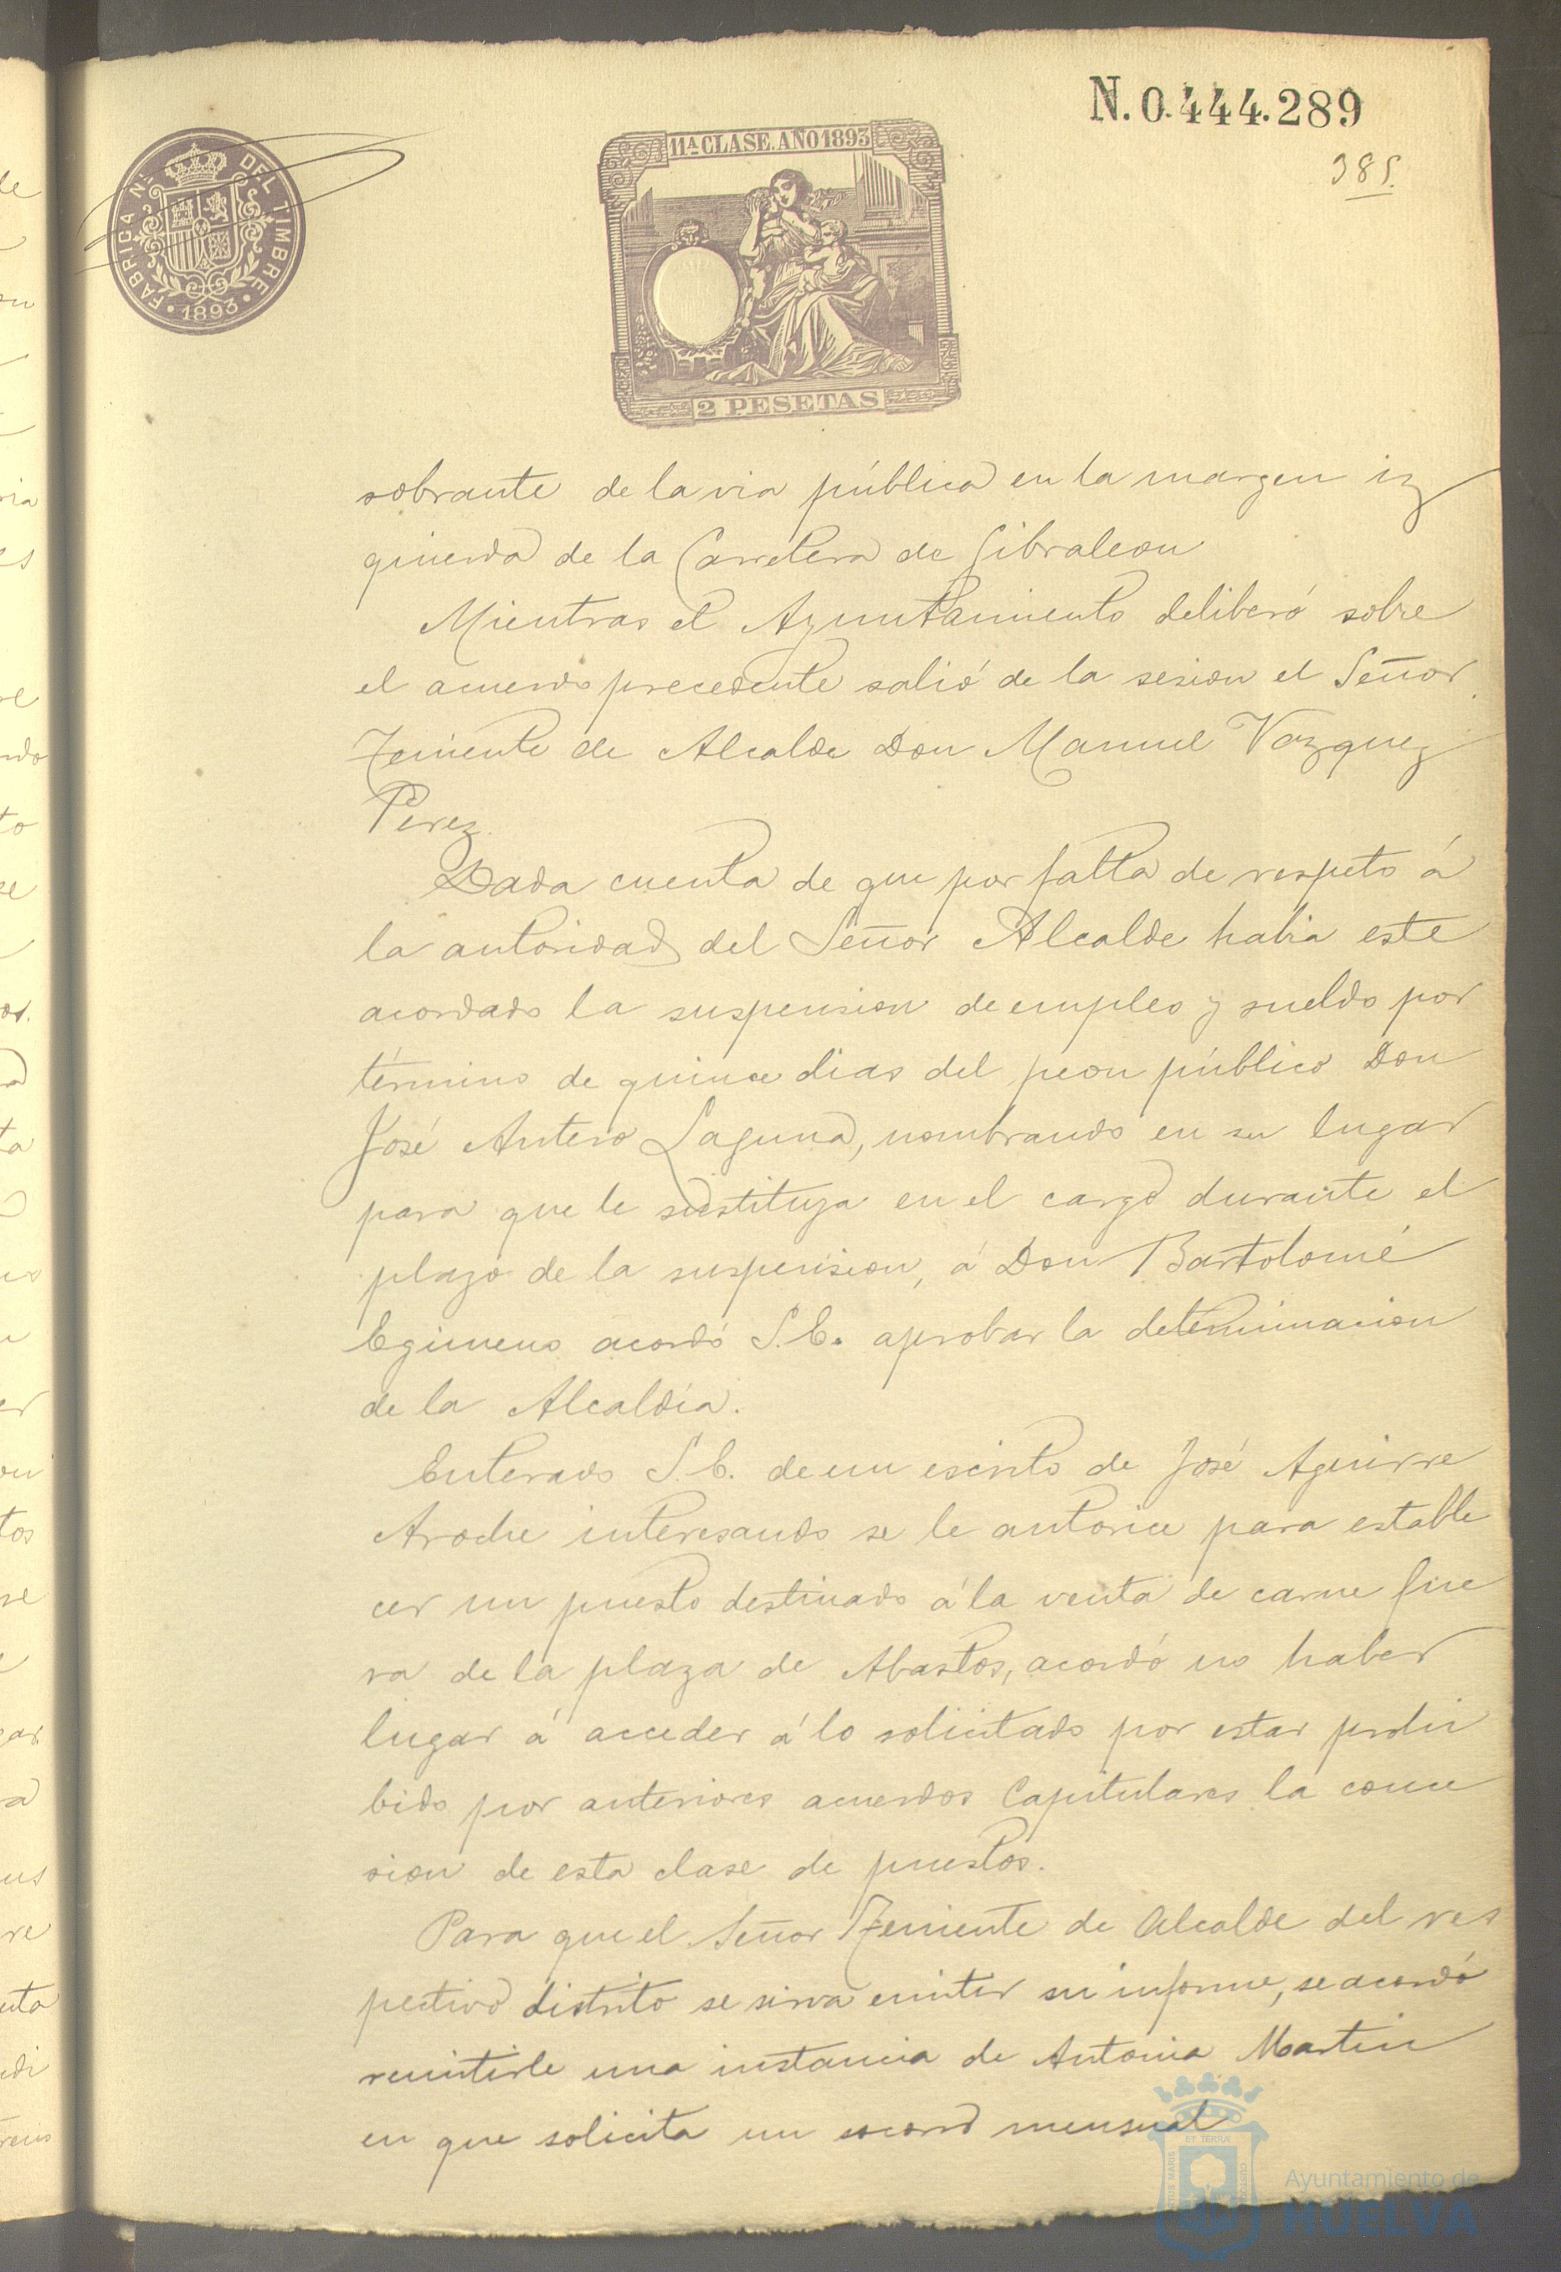 N. 0.444.289
385.
FABRICA N.ᴸ DEL TIMBRE
1893
11ᴬ CLASE. AÑO 1893
2 PESETAS
sobrante de la via pública en la margen iz
quierda de la Carretera de Gibraleon
Mientras el Ayuntamiento deliberó sobre
el acuerdo precedente salió de la sesion el Señor
Teniente de Alcalde Don Manuel Vazquez
Perez.
Dada cuenta de que por falta de respeto á
la autoridad del Señor Alcalde habia este
acordado la suspension de empleo y sueldo por
término de quince dias del peon público Don
José Antero Laguna, nombrando en su lugar
para que le sustituya en el cargo durante el
plazo de la suspension, á Don Bartolomé
Egimeno acordó S.E. aprobar la determinacion
de la Alcaldía.
Enterado S.E. de un escrito de José Aguirre
Aroche interesando se le autorice para estable
cer un puesto destinado á la venta de carne fue
ra de la plaza de Abastos, acordó no haber
lugar á acceder á lo solicitado por estar prohi
bido por anteriores acuerdos Capitulares la conce
sion de esta clase de puestos.
Para que el Señor Teniente de Alcalde del res
pectivo distrito se sirva emitir su informe, se acordó
remitirle una instancia de Antonia Martin
en que solicita un socorro mensual
Ayuntamiento de
HUELVA